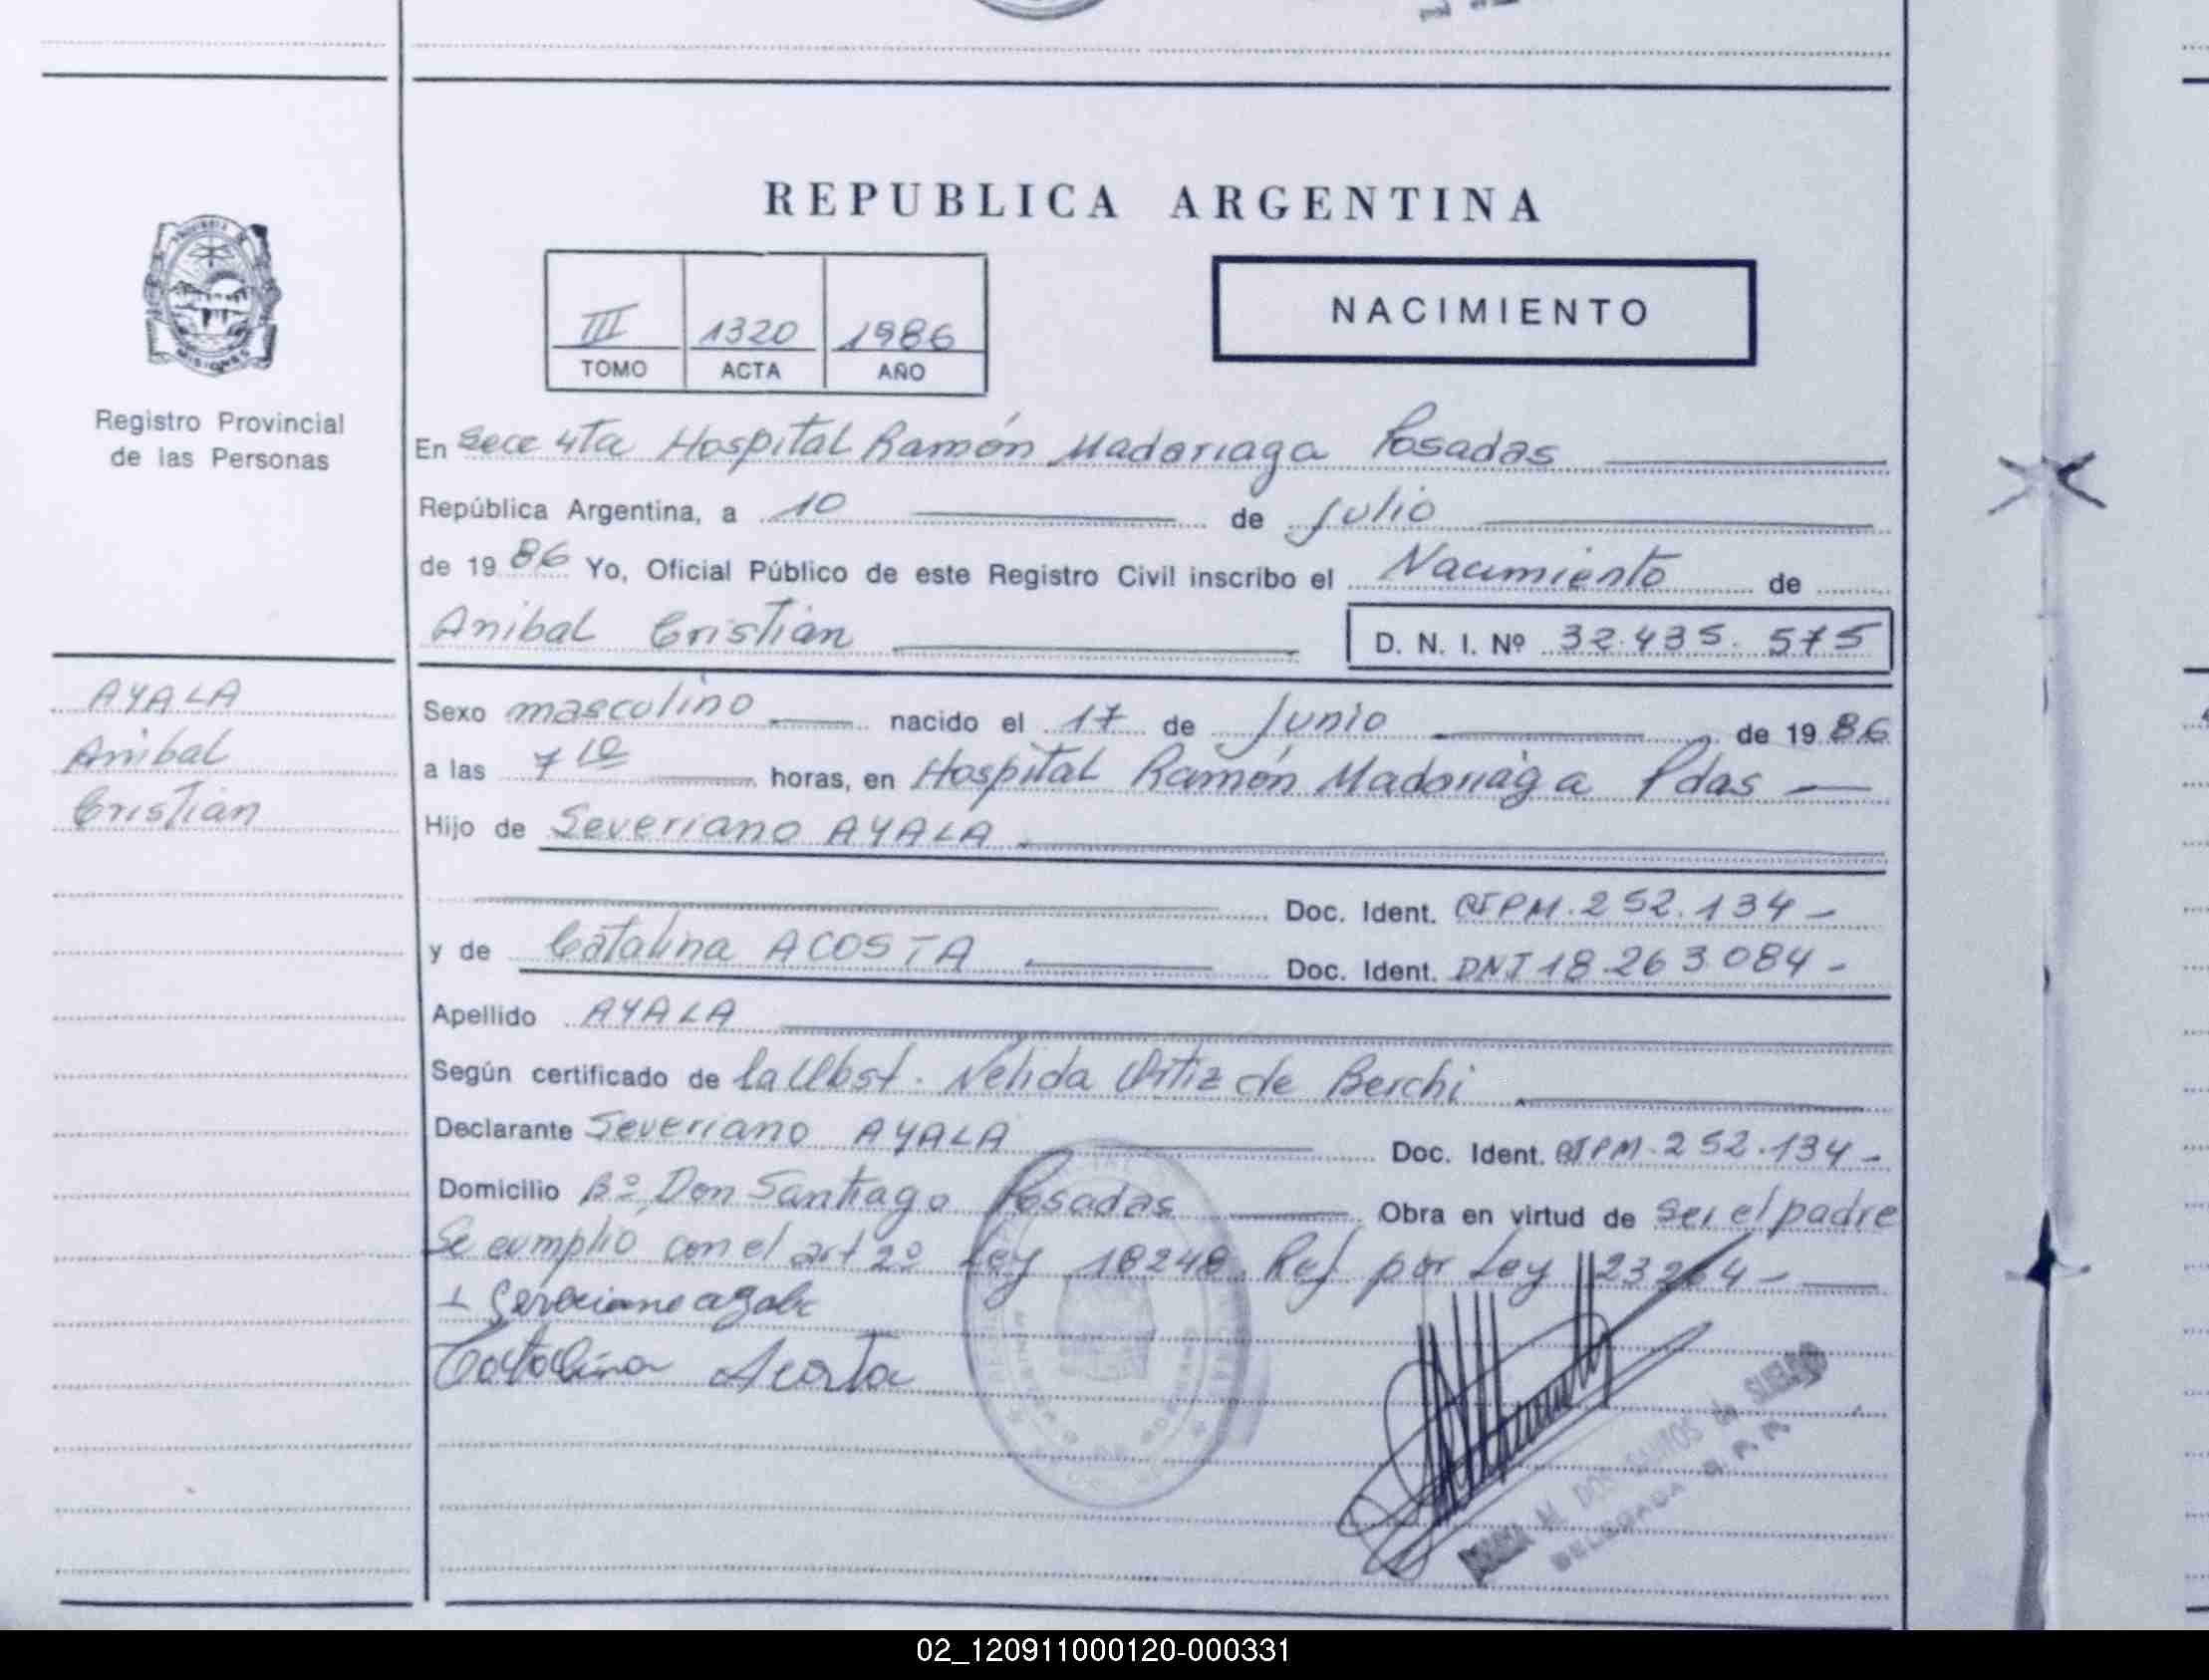 REPUBLICA ARGENTINA
III 1320 1986
TOMO ACTA AÑO
NACIMIENTO
MISIONES
Registro Provincial
de las Personas
En Secc 4ta Hospital Ramón Madariaga Posadas
República Argentina, a 10 de Julio
de 1986 Yo, Oficial Público de este Registro Civil inscribo el Nacimiento de
Anibal Cristian D. N. I. Nº 32.435.575
AYALA
Anibal
Cristian
Sexo masculino nacido el 17 de Junio de 1986
a las 7 10 horas, en Hospital Ramón Madariaga Pdas
Hijo de Severiano AYALA
Doc. Ident. CIPM.252.134-
y de Catalina ACOSTA Doc. Ident. DNI 18.263.084-
Apellido AYALA
Según certificado de la Obst. Nelida Ortiz de Berchi
Declarante Severiano AYALA Doc. Ident. CIPM.252.134-
Domicilio Bº Don Santiago Posadas Obra en virtud de ser el padre
Se cumplió con el art 2º Ley 18248 Ref por Ley 23264-
Severiano ayala
Catalina Acosta
M. DOS SANTOS de
DELEGADA R. P. P.
02_120911000120-000331